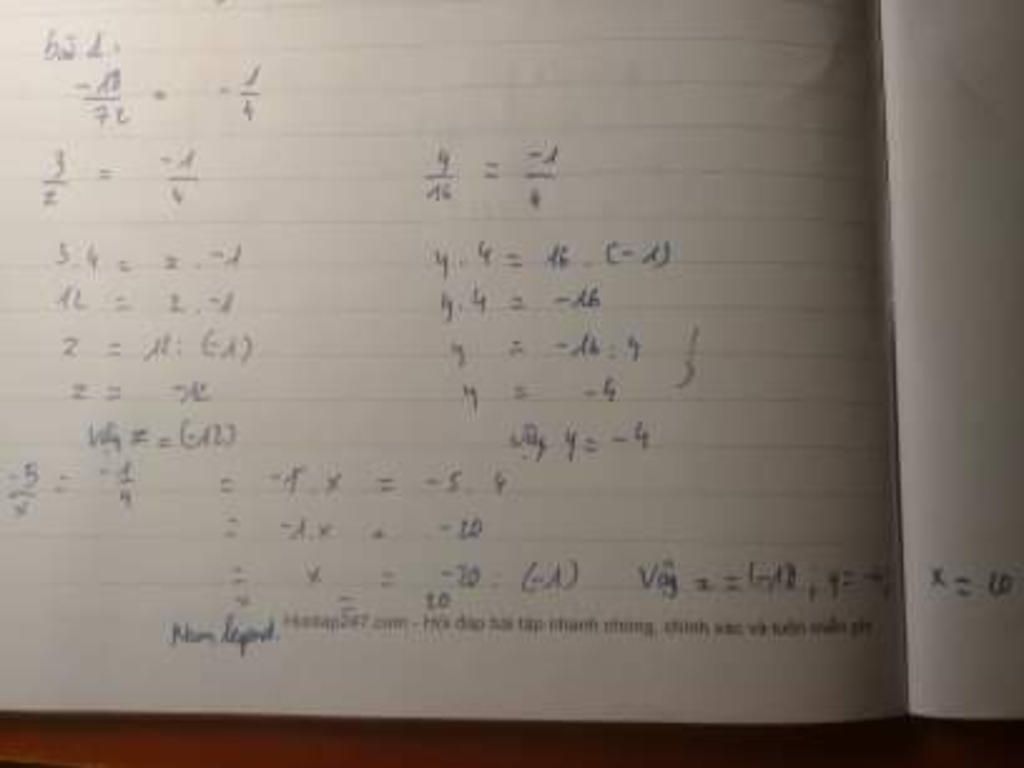 bài 1:
-18/72 = -1/4
3/z = -1/4
3.4 = z . -1
12 = z . -1
z = 12 : (-1)
z = -12
Vậy z = (-12)
y/16 = -1/4
y . 4 = 16 . (-1)
y . 4 = -16
y = -16 : 4
y = -4
Vậy y = -4
-5/x = -1/4 = -1 . x = -5 . 4
= -1.x = -20
= x = -20 : (-1) Vậy z = (-12), y = -4, x = 20
= 20
Nam legend. Hoidap247.com - Hỏi đáp bài tập nhanh chóng, chính xác và luôn miễn phí